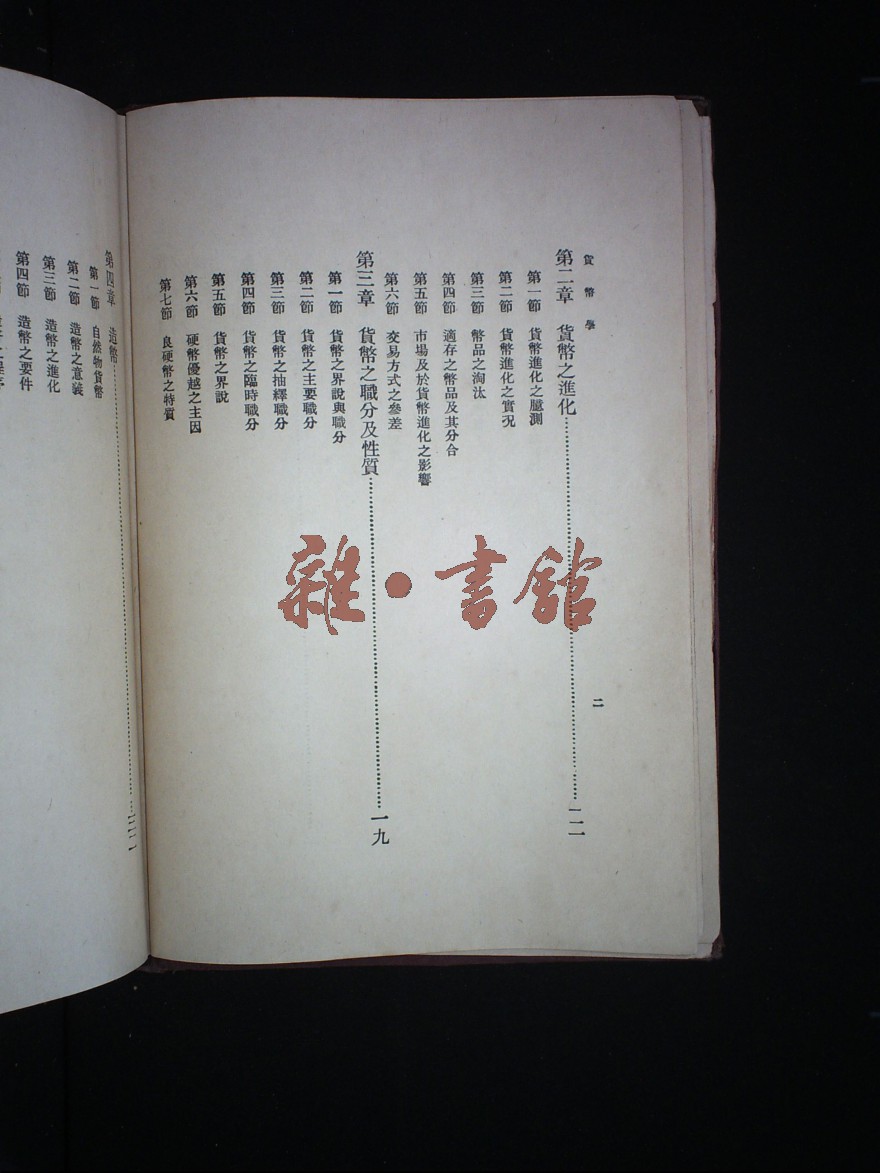 貨幣學
二
第二章 貨幣之進化……一二
第一節 貨幣進化之臆測
第二節 貨幣進化之實況
第三節 幣品之淘汰
第四節 適存之幣品及其分合
第五節 市場及於貨幣進化之影響
第六節 交易方式之參差
第三章 貨幣之職分及性質……一九
第一節 貨幣之界說與職分
第二節 貨幣之主要職分
第三節 貨幣之抽繹職分
第四節 貨幣之臨時職分
第五節 貨幣之界說
第六節 硬幣優越之主因
第七節 良硬幣之特質
第四章 造幣……
第一節 自然物貨幣
第二節 造幣之意義
第三節 造幣之進化
第四節 造幣之要件
雜·書館